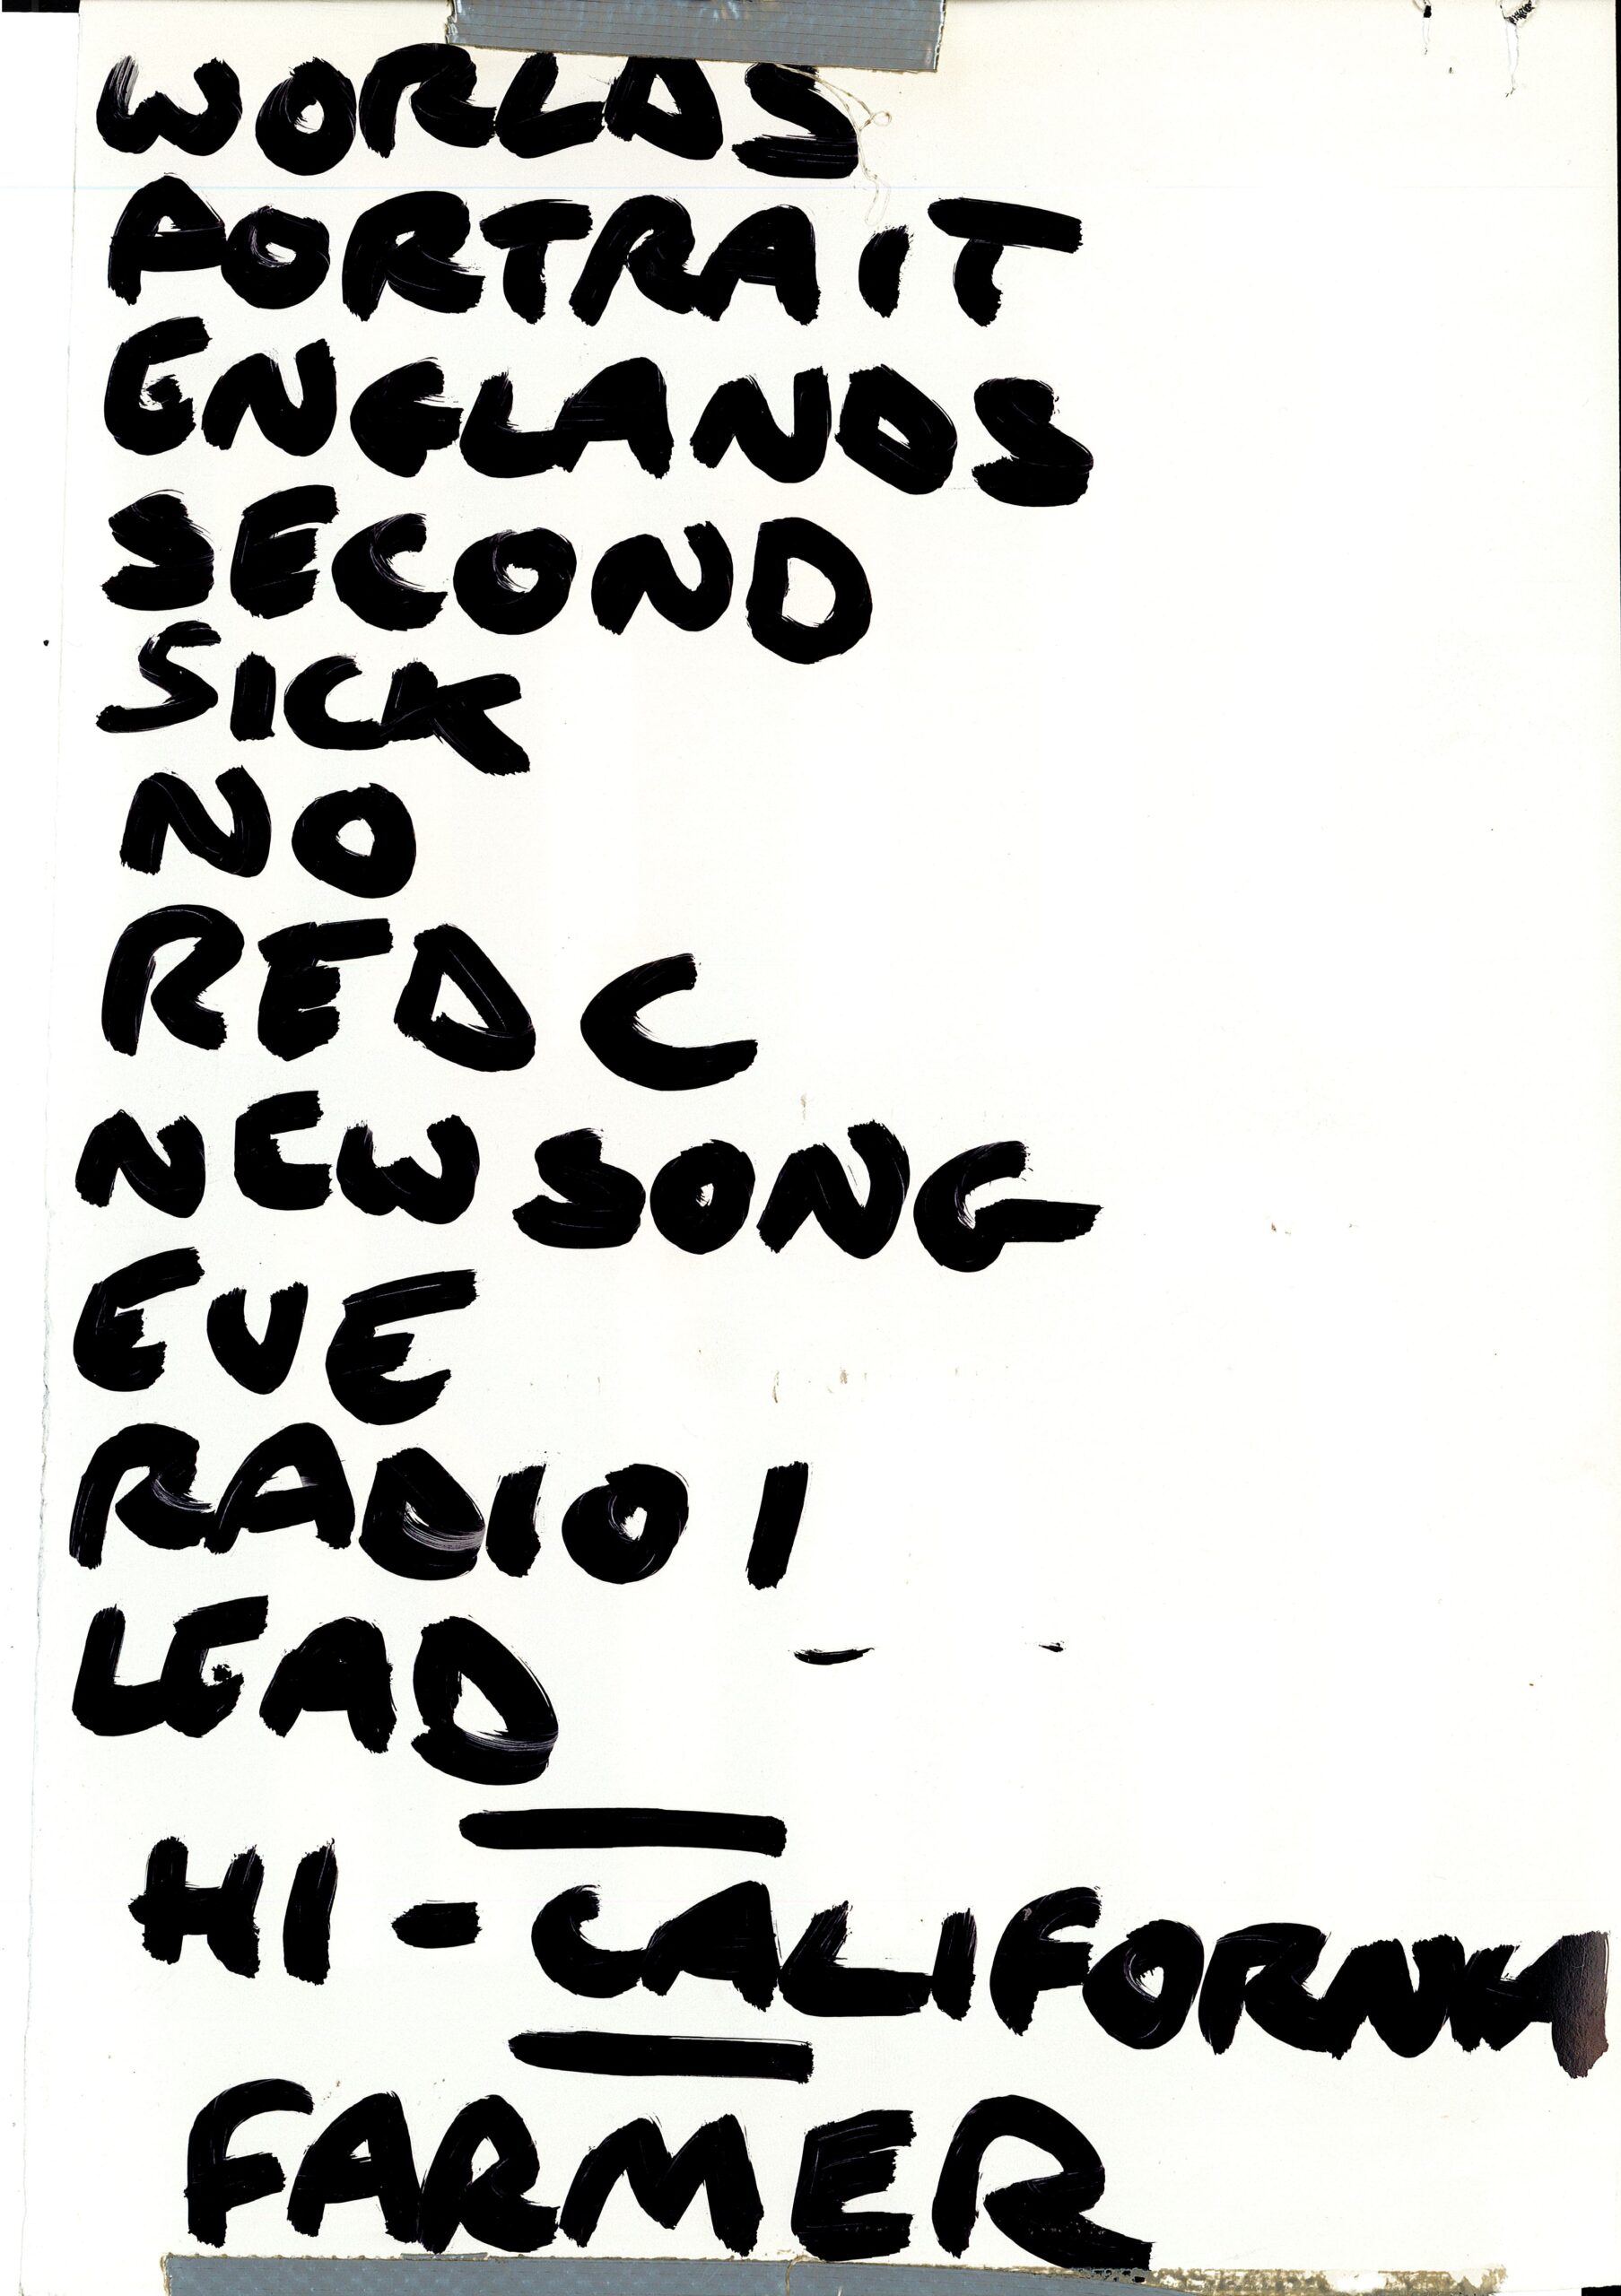 WORLDS
PORTRAIT
ENGLANDS
SECOND
SICK
NO
RED C
NEW SONG
EVE
RADIO 1
LEAD
HI - CALIFORNIA
FARMER